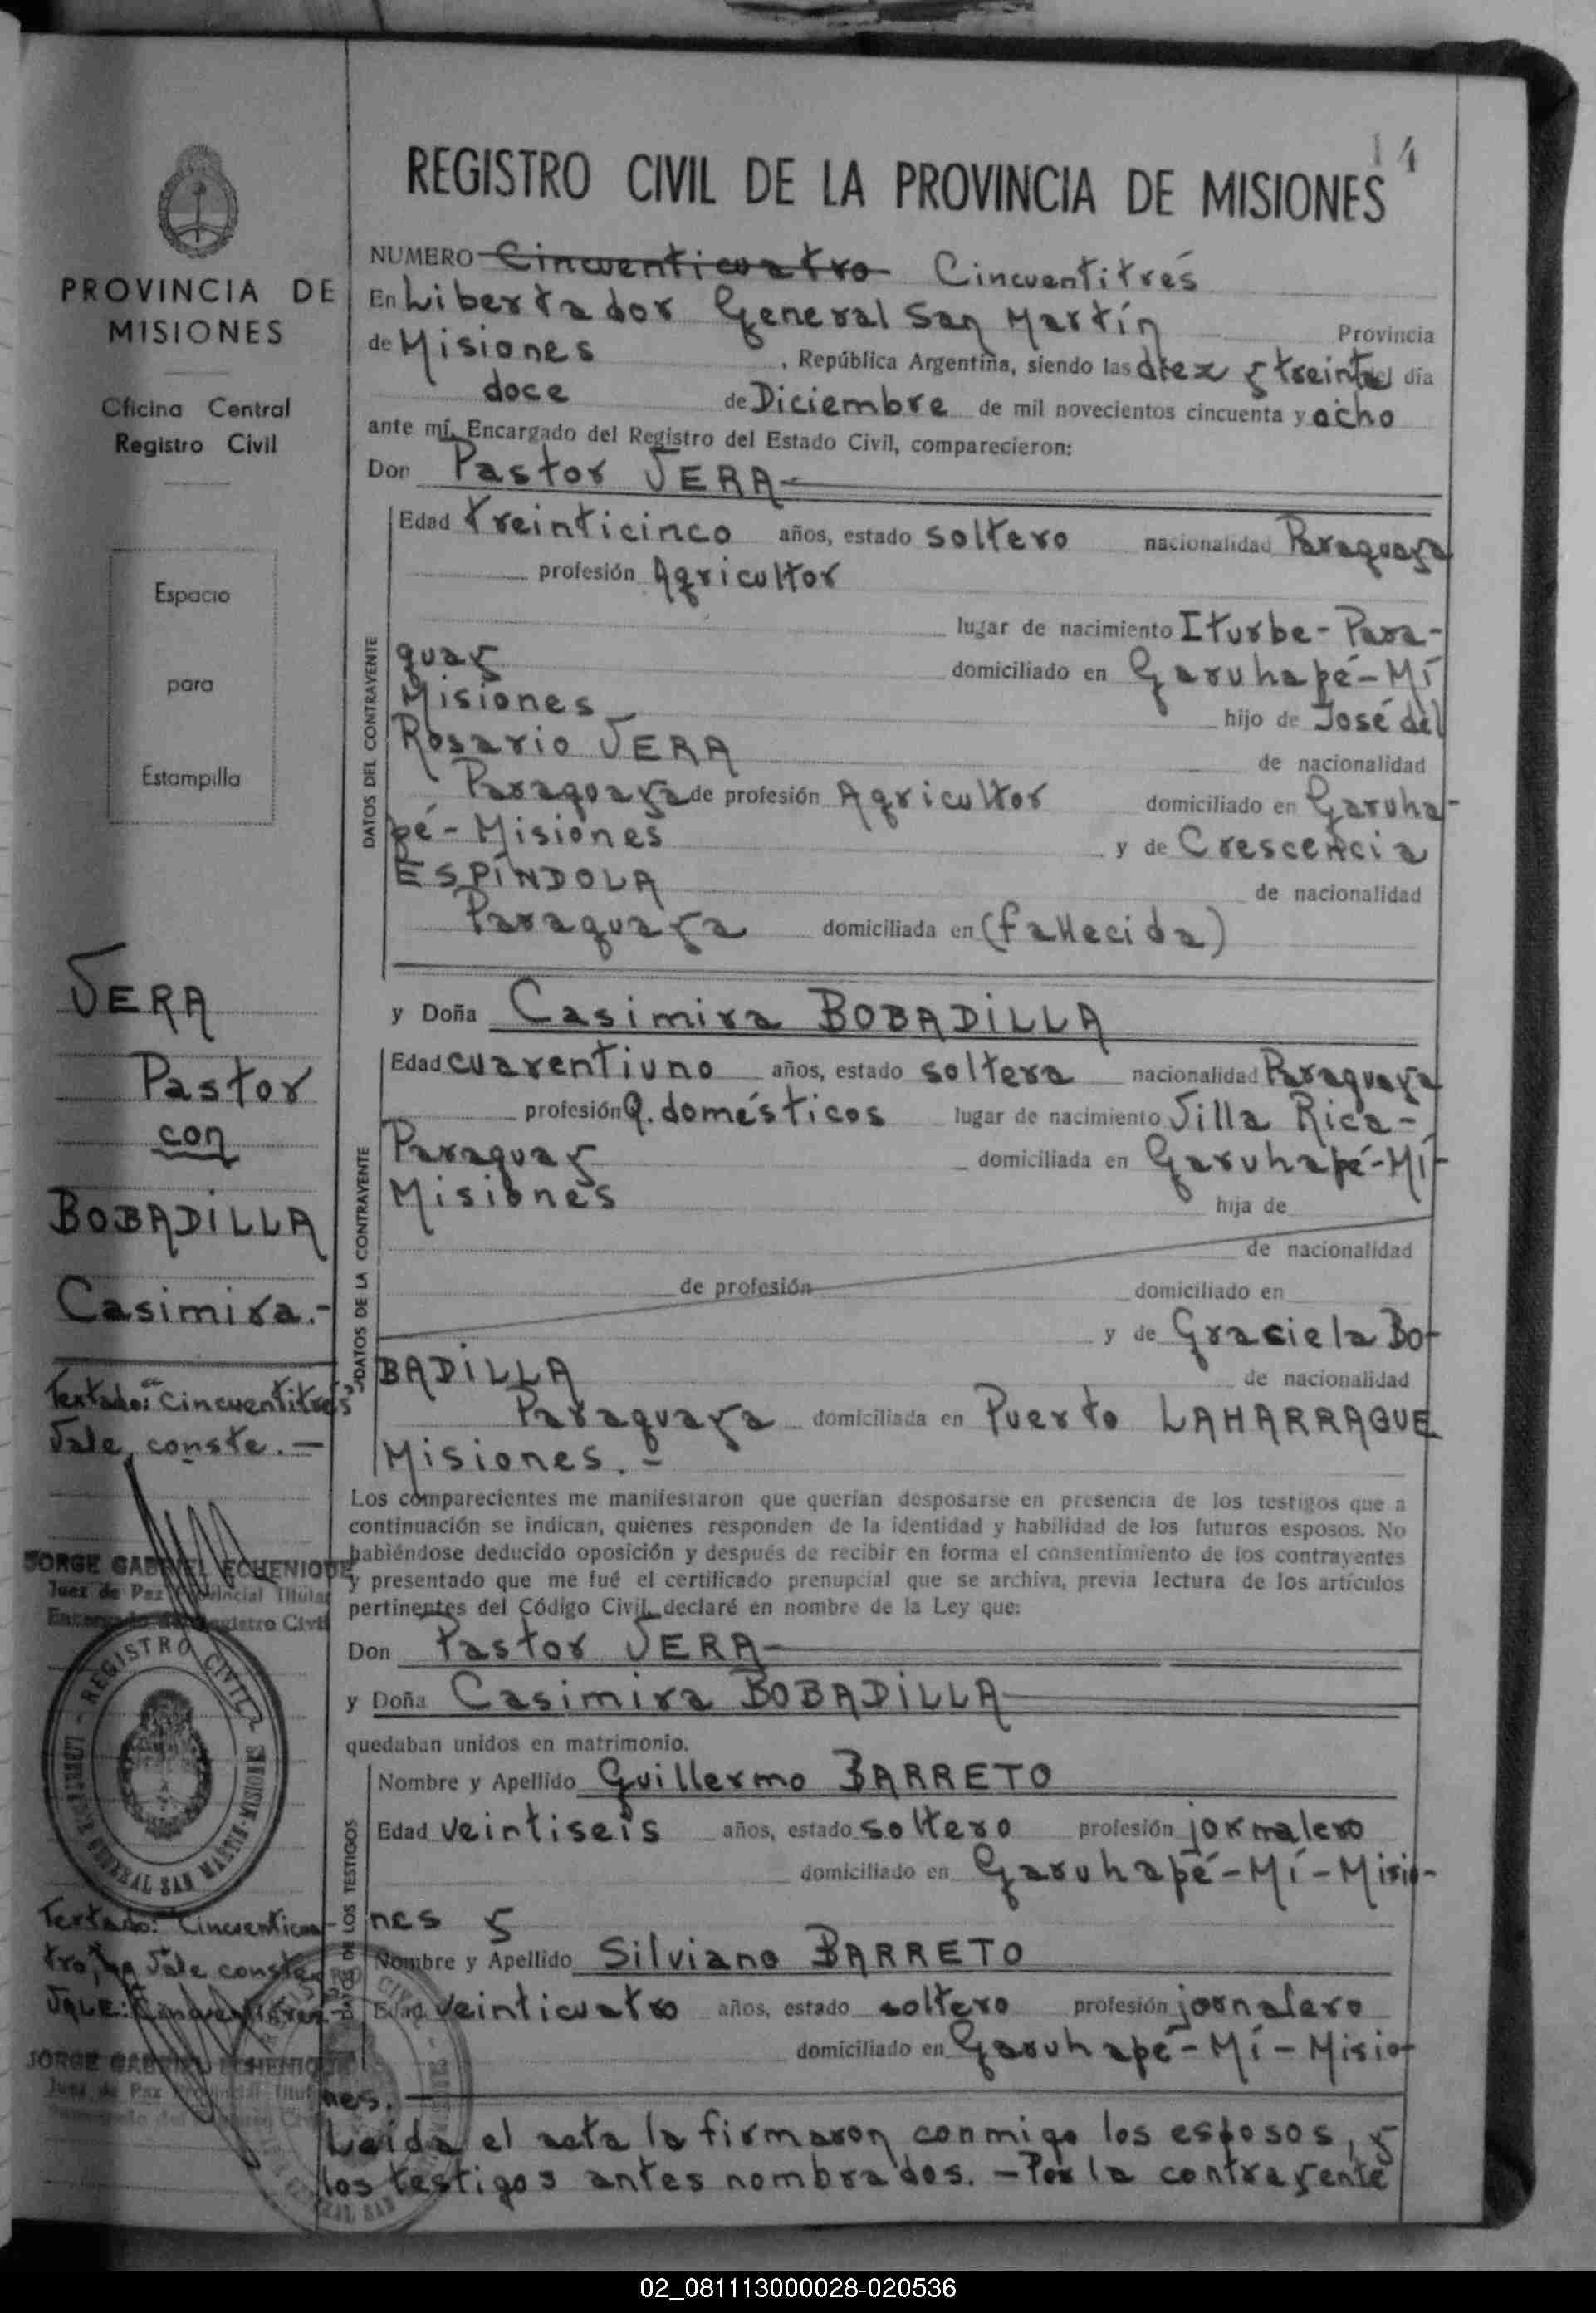 14
REGISTRO CIVIL DE LA PROVINCIA DE MISIONES
PROVINCIA DE
MISIONES
Oficina Central
Registro Civil
Espacio
para
Estampilla
VERA
Pastor
con
BOBADILLA
Casimira.-
Testado: "cincuentitrés"
Vale, conste.—
JORGE GABRIEL ECHENIQUE
Juez de Paz Provincial Titular
Encargado del Registro Civil
REGISTRO CIVIL
LIBERTADOR GENERAL SAN MARTIN-MISIONES
Testado: "Cincuenticua-
tro, Vale conste
VALE: Cincuentitres.-
JORGE GABRIEL ECHENIQUE
Juez de Paz Provincial Titular
NUMERO Cincuenticuatro Cincuentitrés
En Libertador General San Martín Provincia
de Misiones, República Argentina, siendo las diez y treinta del día
doce de Diciembre de mil novecientos cincuenta y ocho
ante mí, Encargado del Registro del Estado Civil, comparecieron:
Don Pastor VERA
DATOS DEL CONTRAYENTE
Edad treinticinco años, estado soltero nacionalidad Paraguaya
profesión Agricultor
lugar de nacimiento Iturbe-Para-
guay domiciliado en Garuhapé-Mí
Misiones hijo de José del
Rosario VERA de nacionalidad
Paraguaya de profesión Agricultor domiciliado en Garuha-
pé-Misiones y de Crescencia
ESPÍNDOLA de nacionalidad
Paraguaya domiciliada en (fallecida)
y Doña Casimira BOBADILLA
DATOS DE LA CONTRAYENTE
Edad cuarentiuno años, estado soltera nacionalidad Paraguaya
profesión Q. domésticos lugar de nacimiento Villa Rica-
Paraguay domiciliada en Garuhapé-Mí-
Misiones hija de
de nacionalidad
de profesión domiciliado en
y de Graciela Bo-
BADILLA de nacionalidad
Paraguaya domiciliada en Puerto LAHARRAGUE
Misiones.-
Los comparecientes me manifestaron que querían desposarse en presencia de los testigos que a
continuación se indican, quienes responden de la identidad y habilidad de los futuros esposos. No
habiéndose deducido oposición y después de recibir en forma el consentimiento de los contrayentes
y presentado que me fué el certificado prenupcial que se archiva, previa lectura de los artículos
pertinentes del Código Civil, declaré en nombre de la Ley que:
Don Pastor VERA
y Doña Casimira BOBADILLA
quedaban unidos en matrimonio.
DATOS DE LOS TESTIGOS
Nombre y Apellido Guillermo BARRETO
Edad veintiseis años, estado soltero profesión jornalero
domiciliado en Garuhapé-Mí-Misio-
nes y
Nombre y Apellido Silviano BARRETO
Edad veinticuatro años, estado soltero profesión jornalero
domiciliado en Garuhapé-Mí-Misio-
nes.
Leída el acta la firmaron conmigo los esposos, y
los testigos antes nombrados.-Por la contrayente
02_081113000028-020536